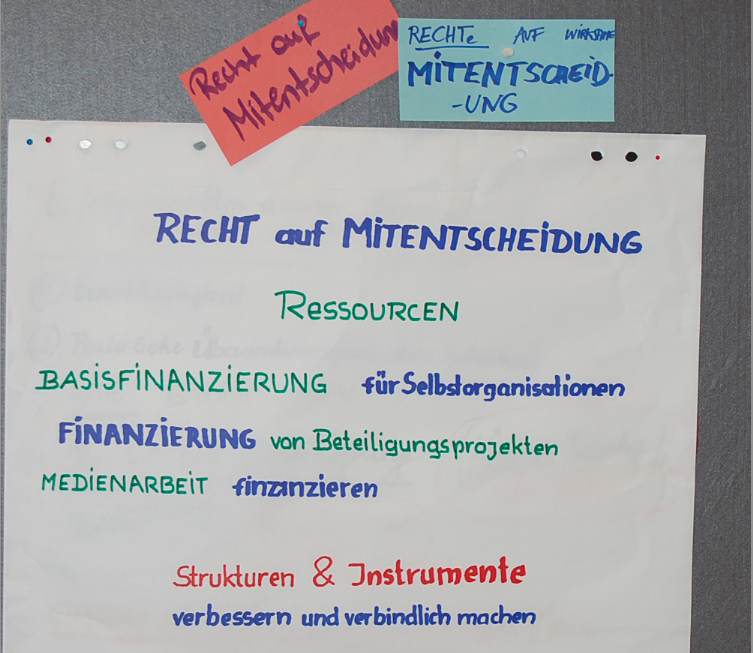 Recht auf
Mitentscheidun
RECHTe AUF WIRKSAME
MITENTSCHEID-
-UNG
RECHT auf MITENTSCHEIDUNG
RESSOURCEN
BASISFINANZIERUNG für Selbstorganisationen
FINANZIERUNG von Beteiligungsprojekten
MEDIENARBEIT finzanzieren
Strukturen & Instrumente
verbessern und verbindlich machen